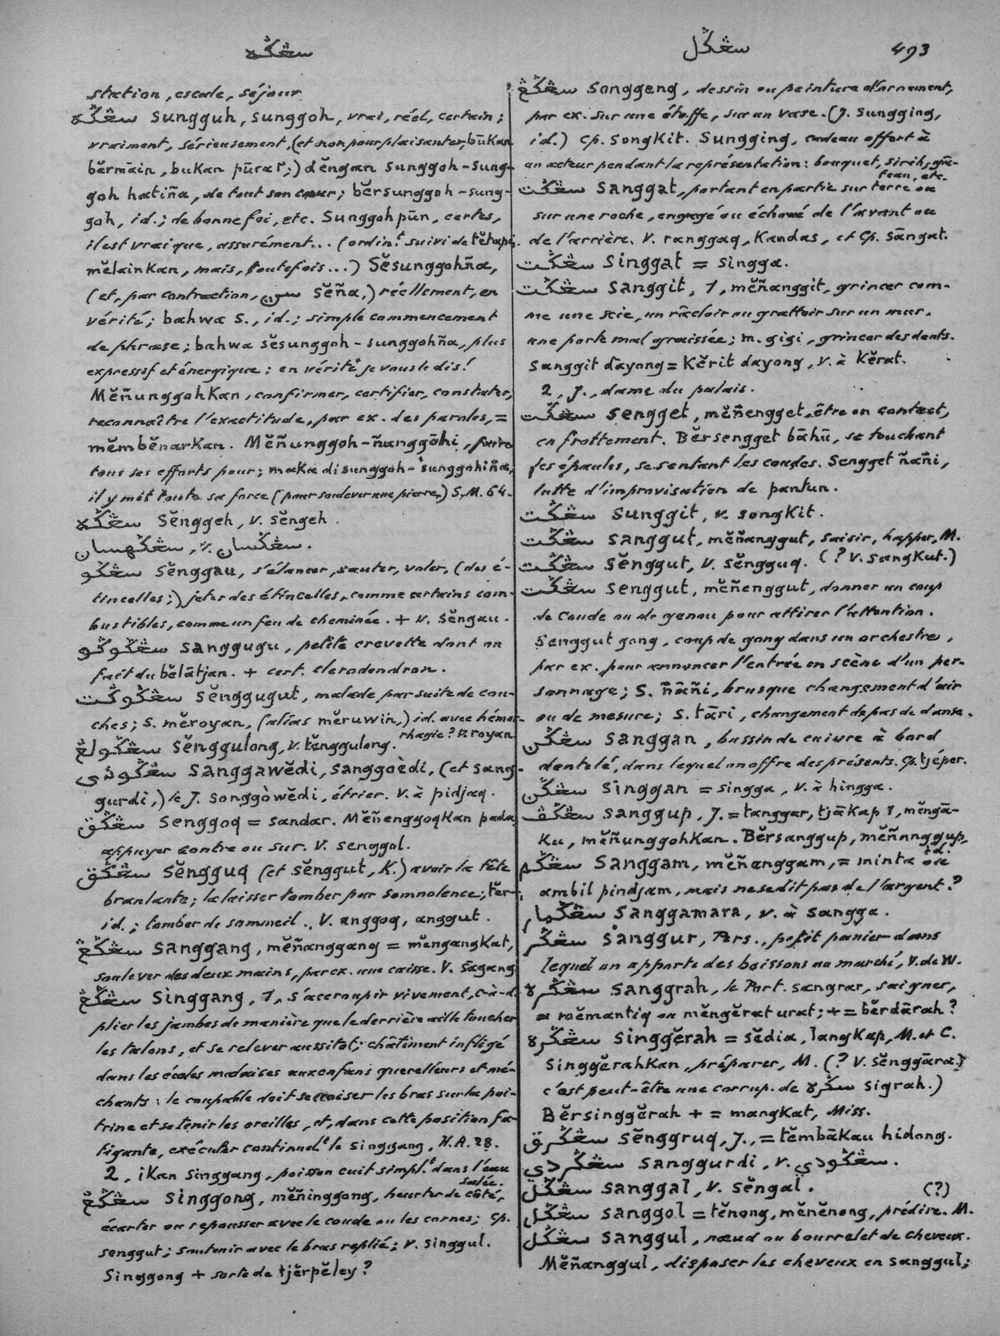 سڠݢه
سڠݢل
493
station, escale, séjour.
سڠݢه sungguh, sunggoh, vrai, réel, certain;
vraiment, sérieusement, (et non pour plaisanter, būkan
bĕrmāin, bukan pūra²;) dĕngan sunggoh-sung-
goh hatiña, de tout son cœur; bĕrsunggoh-sung-
goh, id.; de bonne foi, etc. Sunggohpūn, certes,
il est vrai que, assurément... (ordinᵗ suivi de tĕtapi,
mĕlainkan, mais, toutefois...) Sĕsunggohña,
(et, par contraction, سن sĕña,) réellement, en
vérité; bahwa s., id.; simple commencement
de phrase; bahwa sĕsunggoh-sunggohña, plus
expressif et énergique: en vérité je vous le dis!
Mĕñunggohkan, confirmer, certifier, constater,
reconnaître l'exactitude, par ex. des paroles, =
mĕmbĕnarkan. Mĕñunggoh-ñunggōhi, faire
tous ses efforts pour; maka disunggoh-sunggohiña,
il y mit toute sa force (pour soulever une pierre,) S.M. 64.
سڠݢه sĕnggeh, v. sĕngeh.
سڠݢهسان, v. سڠݢسان.
سڠݢو sĕnggau, s'élancer, sauter, voler, (des é-
tincelles;) jeter des étincelles, comme certains com-
bustibles, comme un feu de cheminée. + v. sĕngau.
سڠݢوݢو sanggugu, petite crevette dont on
fait du bĕlātjan. + cert. clerodendron.
سڠݢوݢت sĕnggugut, malade par suite de cou-
ches; s. mĕroyan, (aliàs mĕruwin,) id. avec hémor-
rhagie? v. royan
سڠݢولڠ sĕnggulong, v. tĕnggulong.
سڠݢودي sanggawĕdi, sanggoèdi, (et sang-
gurdi,) le J. songgòwĕdi, étrier. v. à pidjaq.
سڠݢق senggoq = sandar. Mĕñenggoqkan pada,
appuyer contre ou sur. v. senggol.
سڠݢق sĕngguq (et sĕnggut, K.) avoir la tête
branlante; la laisser tomber par somnolence; tĕr-
id.; tomber de sommeil. v. anggoq, anggut.
سڠݢڠ sanggang, mĕñanggang = mĕngangkat,
soulever des deux mains, par ex. une caisse. v. sagang
سڠݢڠ singgang, 1, s'accroupir vivement, c-à-d
plier les jambes de manière que le derrière aille toucher
les talons, et se relever aussitôt; châtiment infligé
dans les écoles malaises aux enfans querelleurs et mé-
chants: le coupable doit se croiser les bras sur la poi-
trine et se tenir les oreilles, et, dans cette position fa-
tigante, exécuter continuelᵗ le singgang, H.A. 28.
2, ikan singgang, poisson cuit simplᵗ dans l'eau
salée.
سڠݢڠ singgong, mĕñinggong, heurter de côté,
écarter ou repousser avec le coude ou les cornes; cp.
senggut; soutenir avec le bras replié; v. singgul.
Singgong + sorte de tjĕrpĕley?
سڠݢڠ songgeng, dessin ou peinture d'ornement,
par ex. sur une étoffe, sur un vase. (J. sungging,
id.) cp. songkit. Sungging, cadeau offert à
un acteur pendant la représentation: bouquet, sirih, gâ-
teau, etc.
سڠݢت sanggat, portant en partie sur terre ou
sur une roche, engagé ou échoué de l'avant ou
de l'arrière. v. ranggaq, kandas, et cp. sāngat.
سڠݢت singgat = singga.
سڠݢت sanggit, 1, mĕñanggit, grincer com-
me une scie, un râcloir ou grattoir sur un mur,
une porte mal graissée; m. gigi, grincer des dents.
Sanggit dayong = kĕrit dayong, v. à kĕrat.
2, J., dame du palais.
سڠݢت sengget, mĕñengget, être en contact,
en frottement. Bĕrsengget bāhū, se touchant
les épaules, se sentant les coudes. Sengget ñañi,
lutte d'improvisation de pantun.
سڠݢت sunggit, v. songkit.
سڠݢت sanggut, mĕñanggut, saisir, happer, M.
(? v. sangkut.)
سڠݢت sĕnggut, v. sĕngguq.
سڠݢت senggut, mĕñenggut, donner un coup
de coude ou de genou pour attirer l'attention.
Senggut gong, coup de gong dans un orchestre,
par ex. pour annoncer l'entrée en scène d'un per-
sonnage; s. ñāñi, brusque changement d'air
ou de mesure; s. tāri, changement de pas de danse.
سڠݢن sanggan, bassin de cuivre à bord
dentelé, dans lequel on offre des présents. Cp. tjéper.
سڠݢن singgan = singga, v. à hingga.
سڠݢڤ sanggup, J. = tanggar, tjākap 1, mĕngā-
ku, mĕñunggohkan. Bĕrsanggup, mĕñanggup,
id.
سڠݢم sanggam, mĕñanggam, = minta ou
ambil pindjam, mais ne se dit pas de l'argent?
سڠݢمار sanggamara, v. à sangga.
سڠݢر sanggur, Pers., petit panier dans
lequel on apporte des boissons au marché, v. de W.
سڠݢره sanggrah, le Port. sangrar, saigner,
= mĕmantiq ou mĕngĕrat urat; + = bĕrdārah?
سڠݢره singgĕrah = sĕdia, langkap, M. et C.
Singgĕrahkan, préparer, M. (? v. sĕnggāra.)
c'est peut-être une corrup. de سݢره sigrah.)
Bĕrsinggĕrah + = mangkat, Miss.
سڠݢرق sĕnggruq, J., = tĕmbākau hidong.
سڠݢردي sanggurdi, v. سڠݢودي.
سڠݢل sanggal, v. sĕngal. (?)
سڠݢل sanggol = tĕnong, mĕnĕnong, prédire. M.
سڠݢل sanggul, nœud ou bourrelet de cheveux.
Mĕñanggul, disposer les cheveux en sanggul;